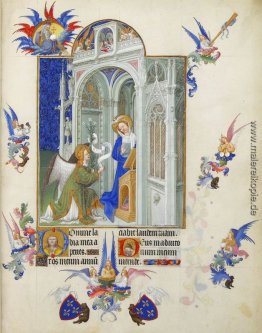 Domine la
bia mea a
peries.
ciabit laudem tuam.
Deus in adiuto
rium meum
intende.
www.malereikopie.de